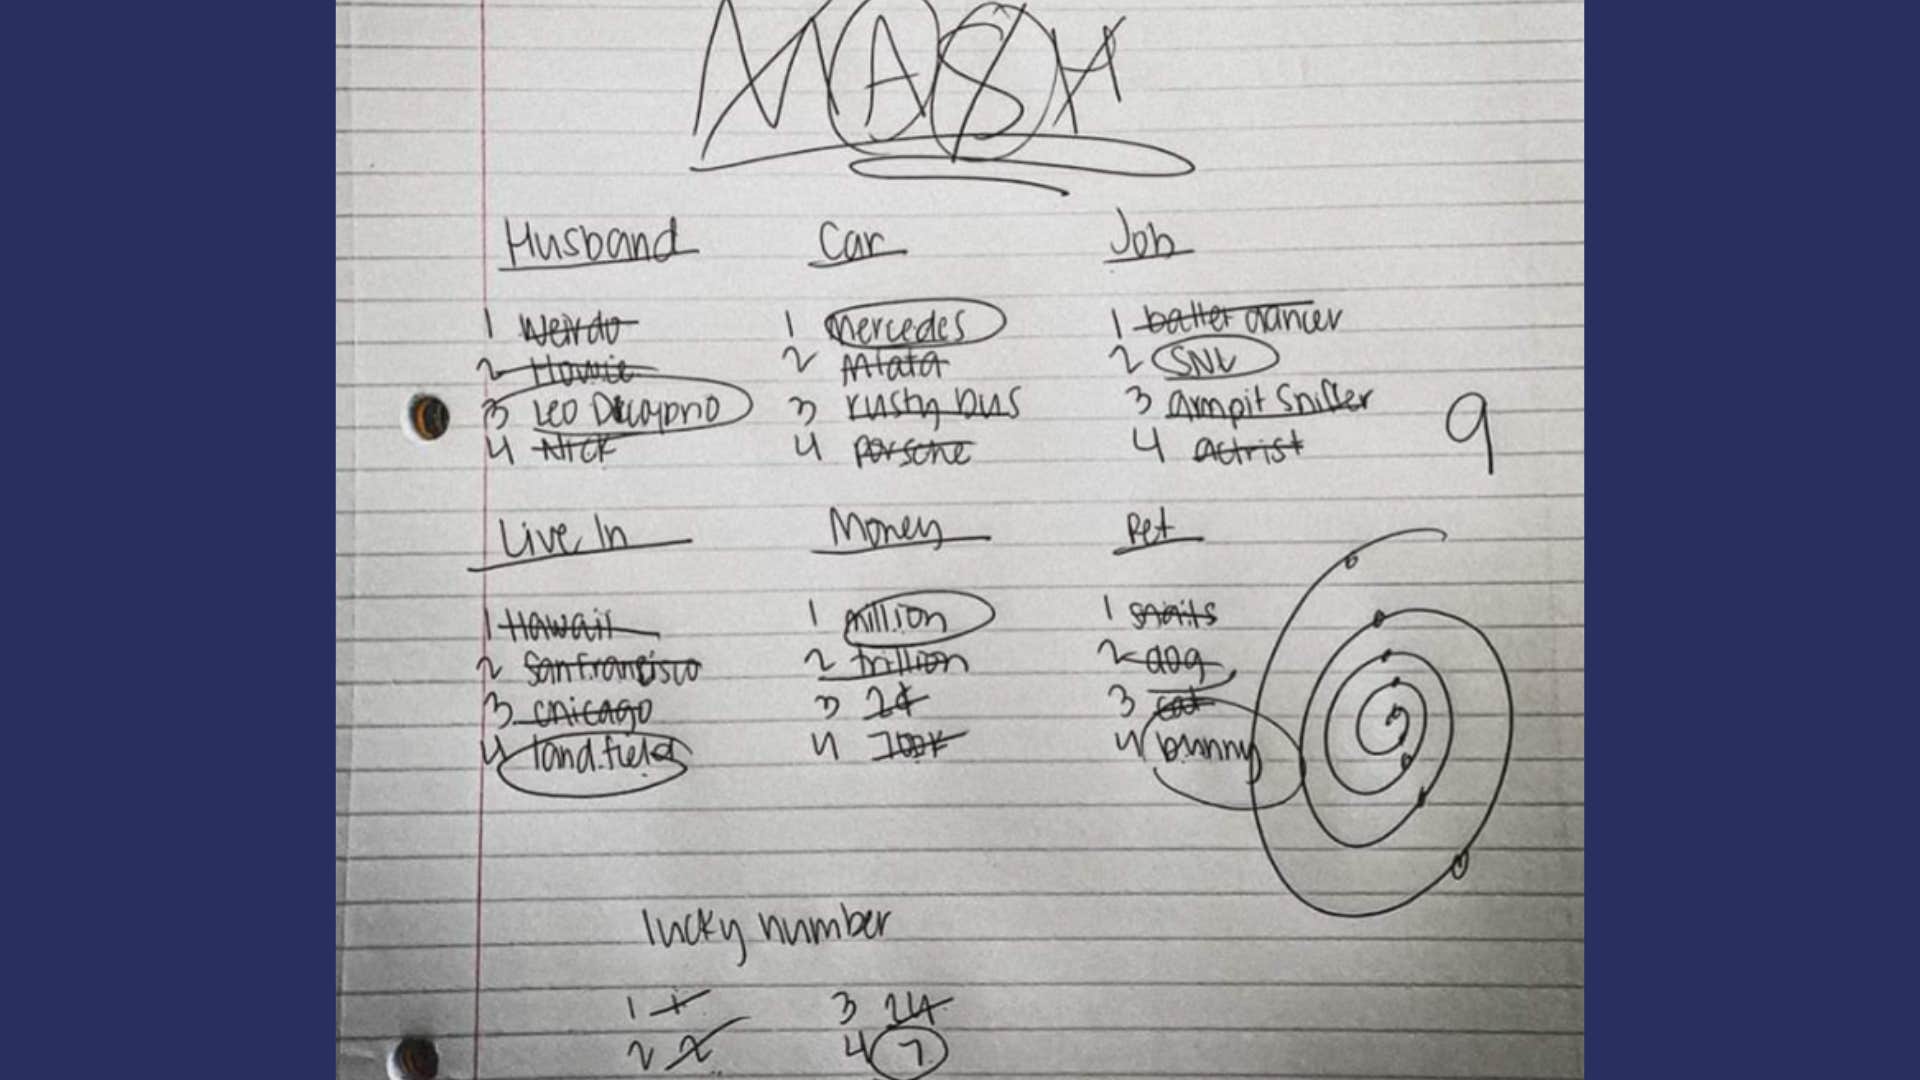 MASH
Husband
1 Weirdo
2 Howie
3 Leo Dicaprio
4 Nick
Car
1 Mercedes
2 Miata
3 rusty bus
4 Porsche
Job
1 ballet dancer
2 SNL
3 armpit sniffer
4 actrist
9
Live In
1 Hawaii
2 San francisco
3 chicago
4 land.field
Money
1 million
2 trillion
3 2¢
4
Pet
1 snails
2 dog
3 cat
4 bunny
lucky number
1 1
2 2
3 24
4 7